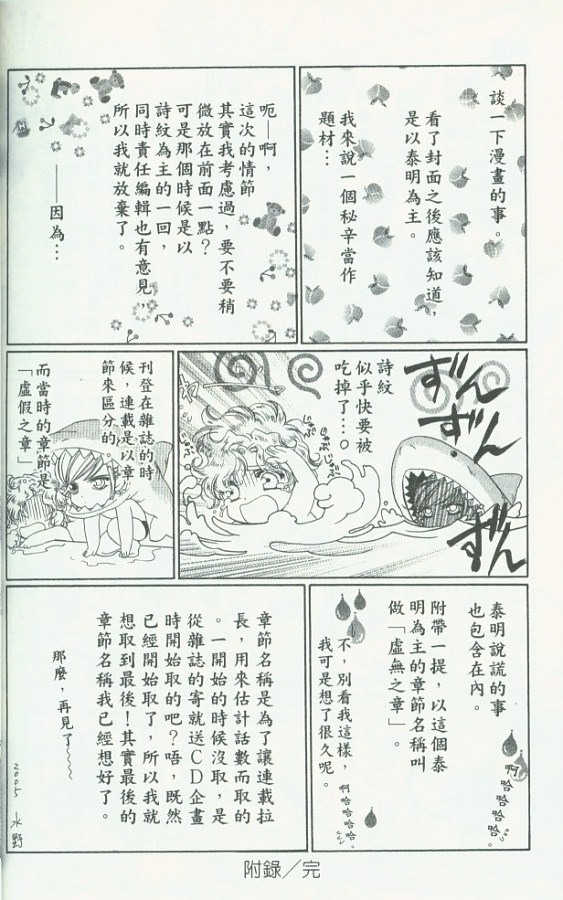 談一下漫畫的事。
看了封面之後應該知道，
是以泰明為主。
我來說一個秘辛當作
題材…
呃—啊，
這次的情節
其實我考慮過，要不要稍
微放在前面一點？
可是那個時候是以
詩紋為主的一回，
同時責任編輯也有意見，
所以我就放棄了。
——因為…
ずんずん
ずん
詩紋
似乎快要被
吃掉了…。
じゃぶ
じゃぶ
じゃぶ
刊登在雜誌的時
候，連載是以章
節來區分的。
而當時的章節是
「虛假之章」
泰明說謊的事
也包含在內。
附帶一提，以這個泰
明為主的章節名稱叫
做「虛無之章」。
啊哈哈哈哈。
不，別看我這樣，
我可是想了很久呢。
啊哈哈哈哈。
章節名稱是為了讓連載拉
長，用來估計話數而取的
。一開始的時候沒取，是
從雜誌的寄就送CD企畫
時開始取的吧？唔，既然
已經開始取了，所以我就
想取到最後！其實最後的
章節名稱我已經想好了。
那麼，再見了～～
2005 水野
附錄／完